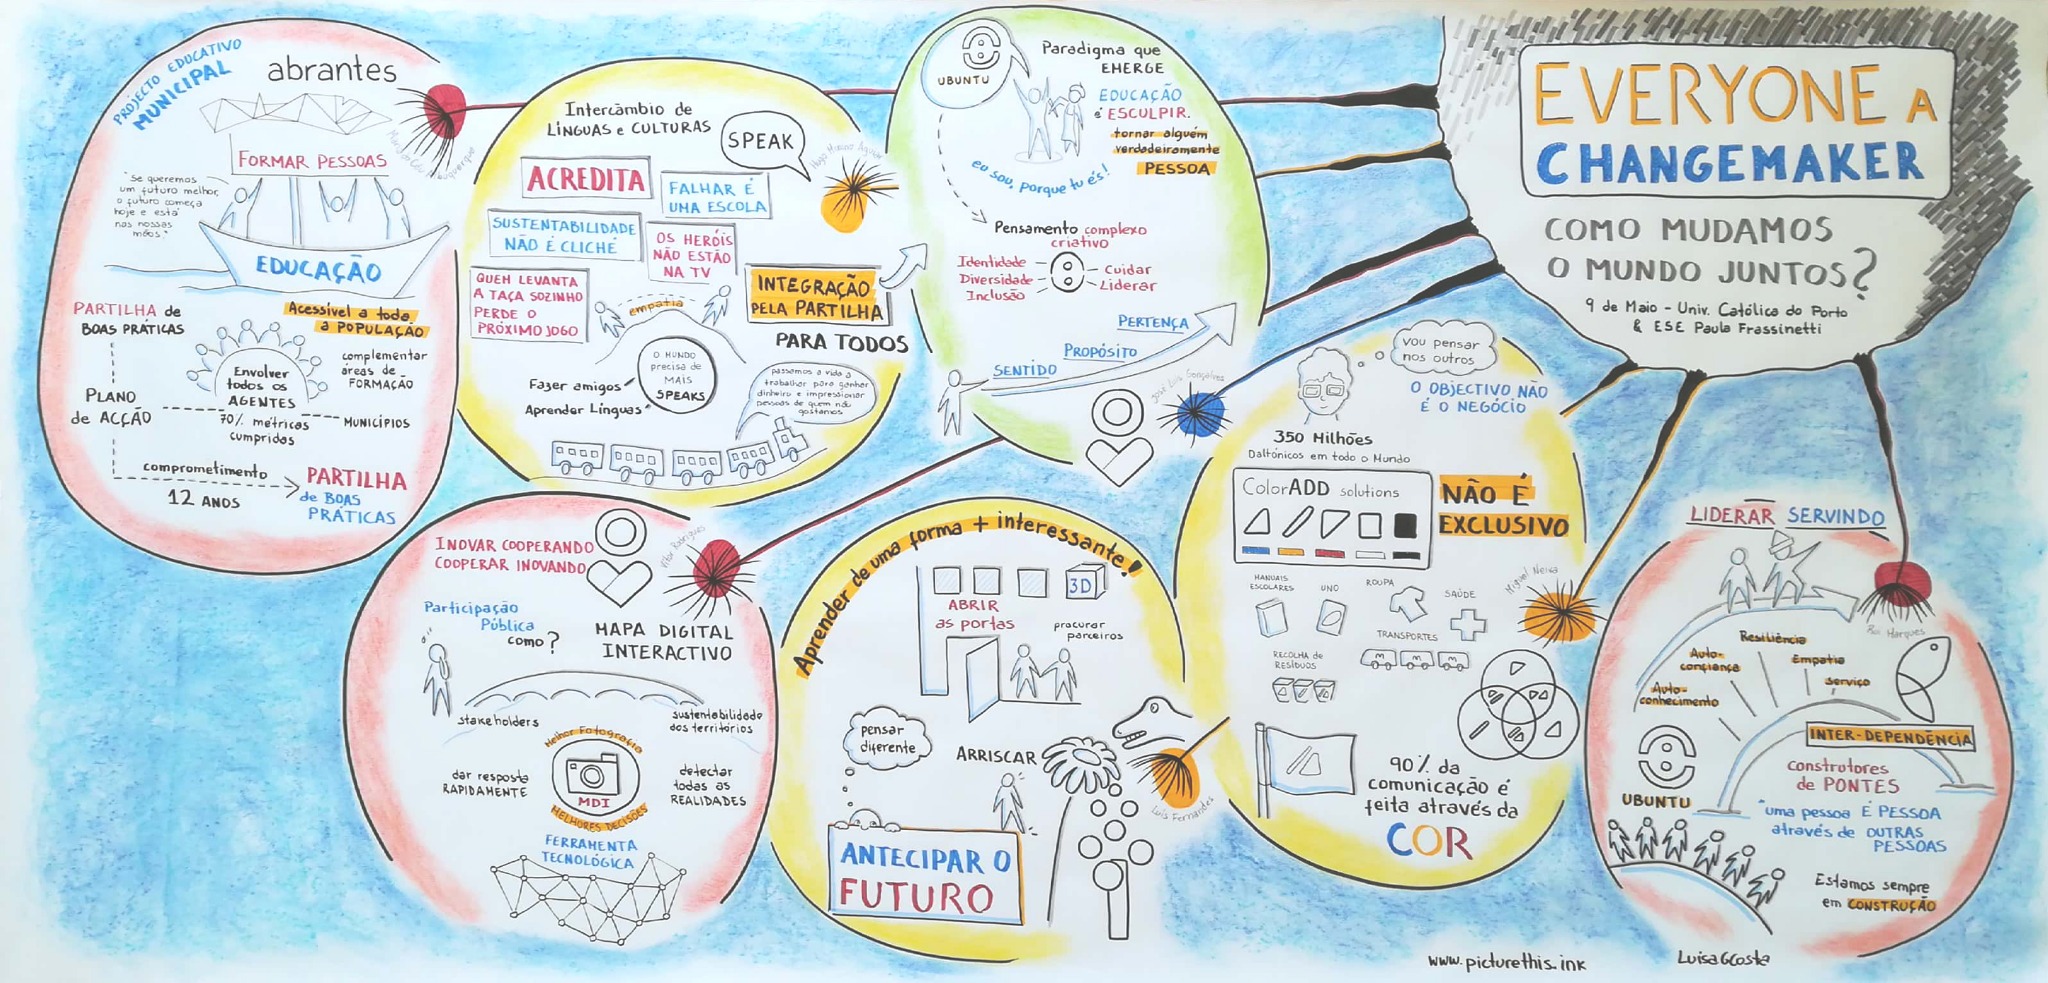 EVERYONE A
CHANGEMAKER
COMO MUDAMOS
O MUNDO JUNTOS?
9 de Maio - Univ. Católica do Porto
& ESE Paula Frassinetti
PROJECTO EDUCATIVO
MUNICIPAL
abrantes
FORMAR PESSOAS
"Se queremos
um futuro melhor,
o futuro começa
hoje e está
nas nossas
mãos."
EDUCAÇÃO
PARTILHA de
BOAS PRÁTICAS
Acessível a toda
a POPULAÇÃO
Envolver
todos os
AGENTES
complementar
áreas de
FORMAÇÃO
PLANO
de ACÇÃO
70% métricas
cumpridas
MUNICÍPIOS
comprometimento
12 ANOS
PARTILHA
de BOAS
PRÁTICAS
Intercâmbio de
LÍNGUAS e CULTURAS
SPEAK
Hugo Menino Aguiar
ACREDITA
FALHAR É
UMA ESCOLA
SUSTENTABILIDADE
NÃO É CLICHÉ
OS HERÓIS
NÃO ESTÃO
NA TV
QUEM LEVANTA
A TAÇA SOZINHO
PERDE O
PRÓXIMO JOGO
empatia
INTEGRAÇÃO
PELA PARTILHA
PARA TODOS
O MUNDO
precisa de
MAIS
SPEAKS
Fazer amigos
Aprender Línguas
passamos a vida a
trabalhar para ganhar
dinheiro e impressionar
pessoas de quem não
gostamos
UBUNTU
Paradigma que
EMERGE
EDUCAÇÃO
é ESCULPIR.
tornar alguém
verdadeiramente
PESSOA
eu sou, porque tu és!
Pensamento complexo
criativo
Identidade
Diversidade
Inclusão
Cuidar
Liderar
PERTENÇA
PROPÓSITO
SENTIDO
José Luis Gonçalves
INOVAR COOPERANDO
COOPERAR INOVANDO
Vitor Rodrigues
Participação
Pública
como?
MAPA DIGITAL
INTERACTIVO
stakeholders
sustentabilidade
dos territórios
Melhor Fotografia
MDI
MELHORES DECISÕES
dar resposta
RAPIDAMENTE
detectar
todas as
REALIDADES
FERRAMENTA
TECNOLÓGICA
Aprender de uma forma + interessante!
3D
ABRIR
as portas
procurar
parceiros
pensar
diferente
ARRISCAR
Luís Fernandes
ANTECIPAR O
FUTURO
vou pensar
nos outros
O OBJECTIVO NÃO
É O NEGÓCIO
350 Milhões
Daltónicos em todo o Mundo
ColorADD solutions
NÃO É
EXCLUSIVO
MANUAIS
ESCOLARES
UNO
ROUPA
SAÚDE
TRANSPORTES
M M M
RECOLHA de
RESÍDUOS
Miguel Neiva
90% da
comunicação é
feita através da
COR
LIDERAR SERVINDO
Rui Marques
Resiliência
Auto-
confiança
Empatia
Serviço
Auto-
conhecimento
INTER-DEPENDÊNCIA
UBUNTU
construtores
de PONTES
"uma pessoa É PESSOA
através de OUTRAS
PESSOAS
Estamos sempre
em CONSTRUÇÃO
www.picturethis.ink
LuisaGCosta